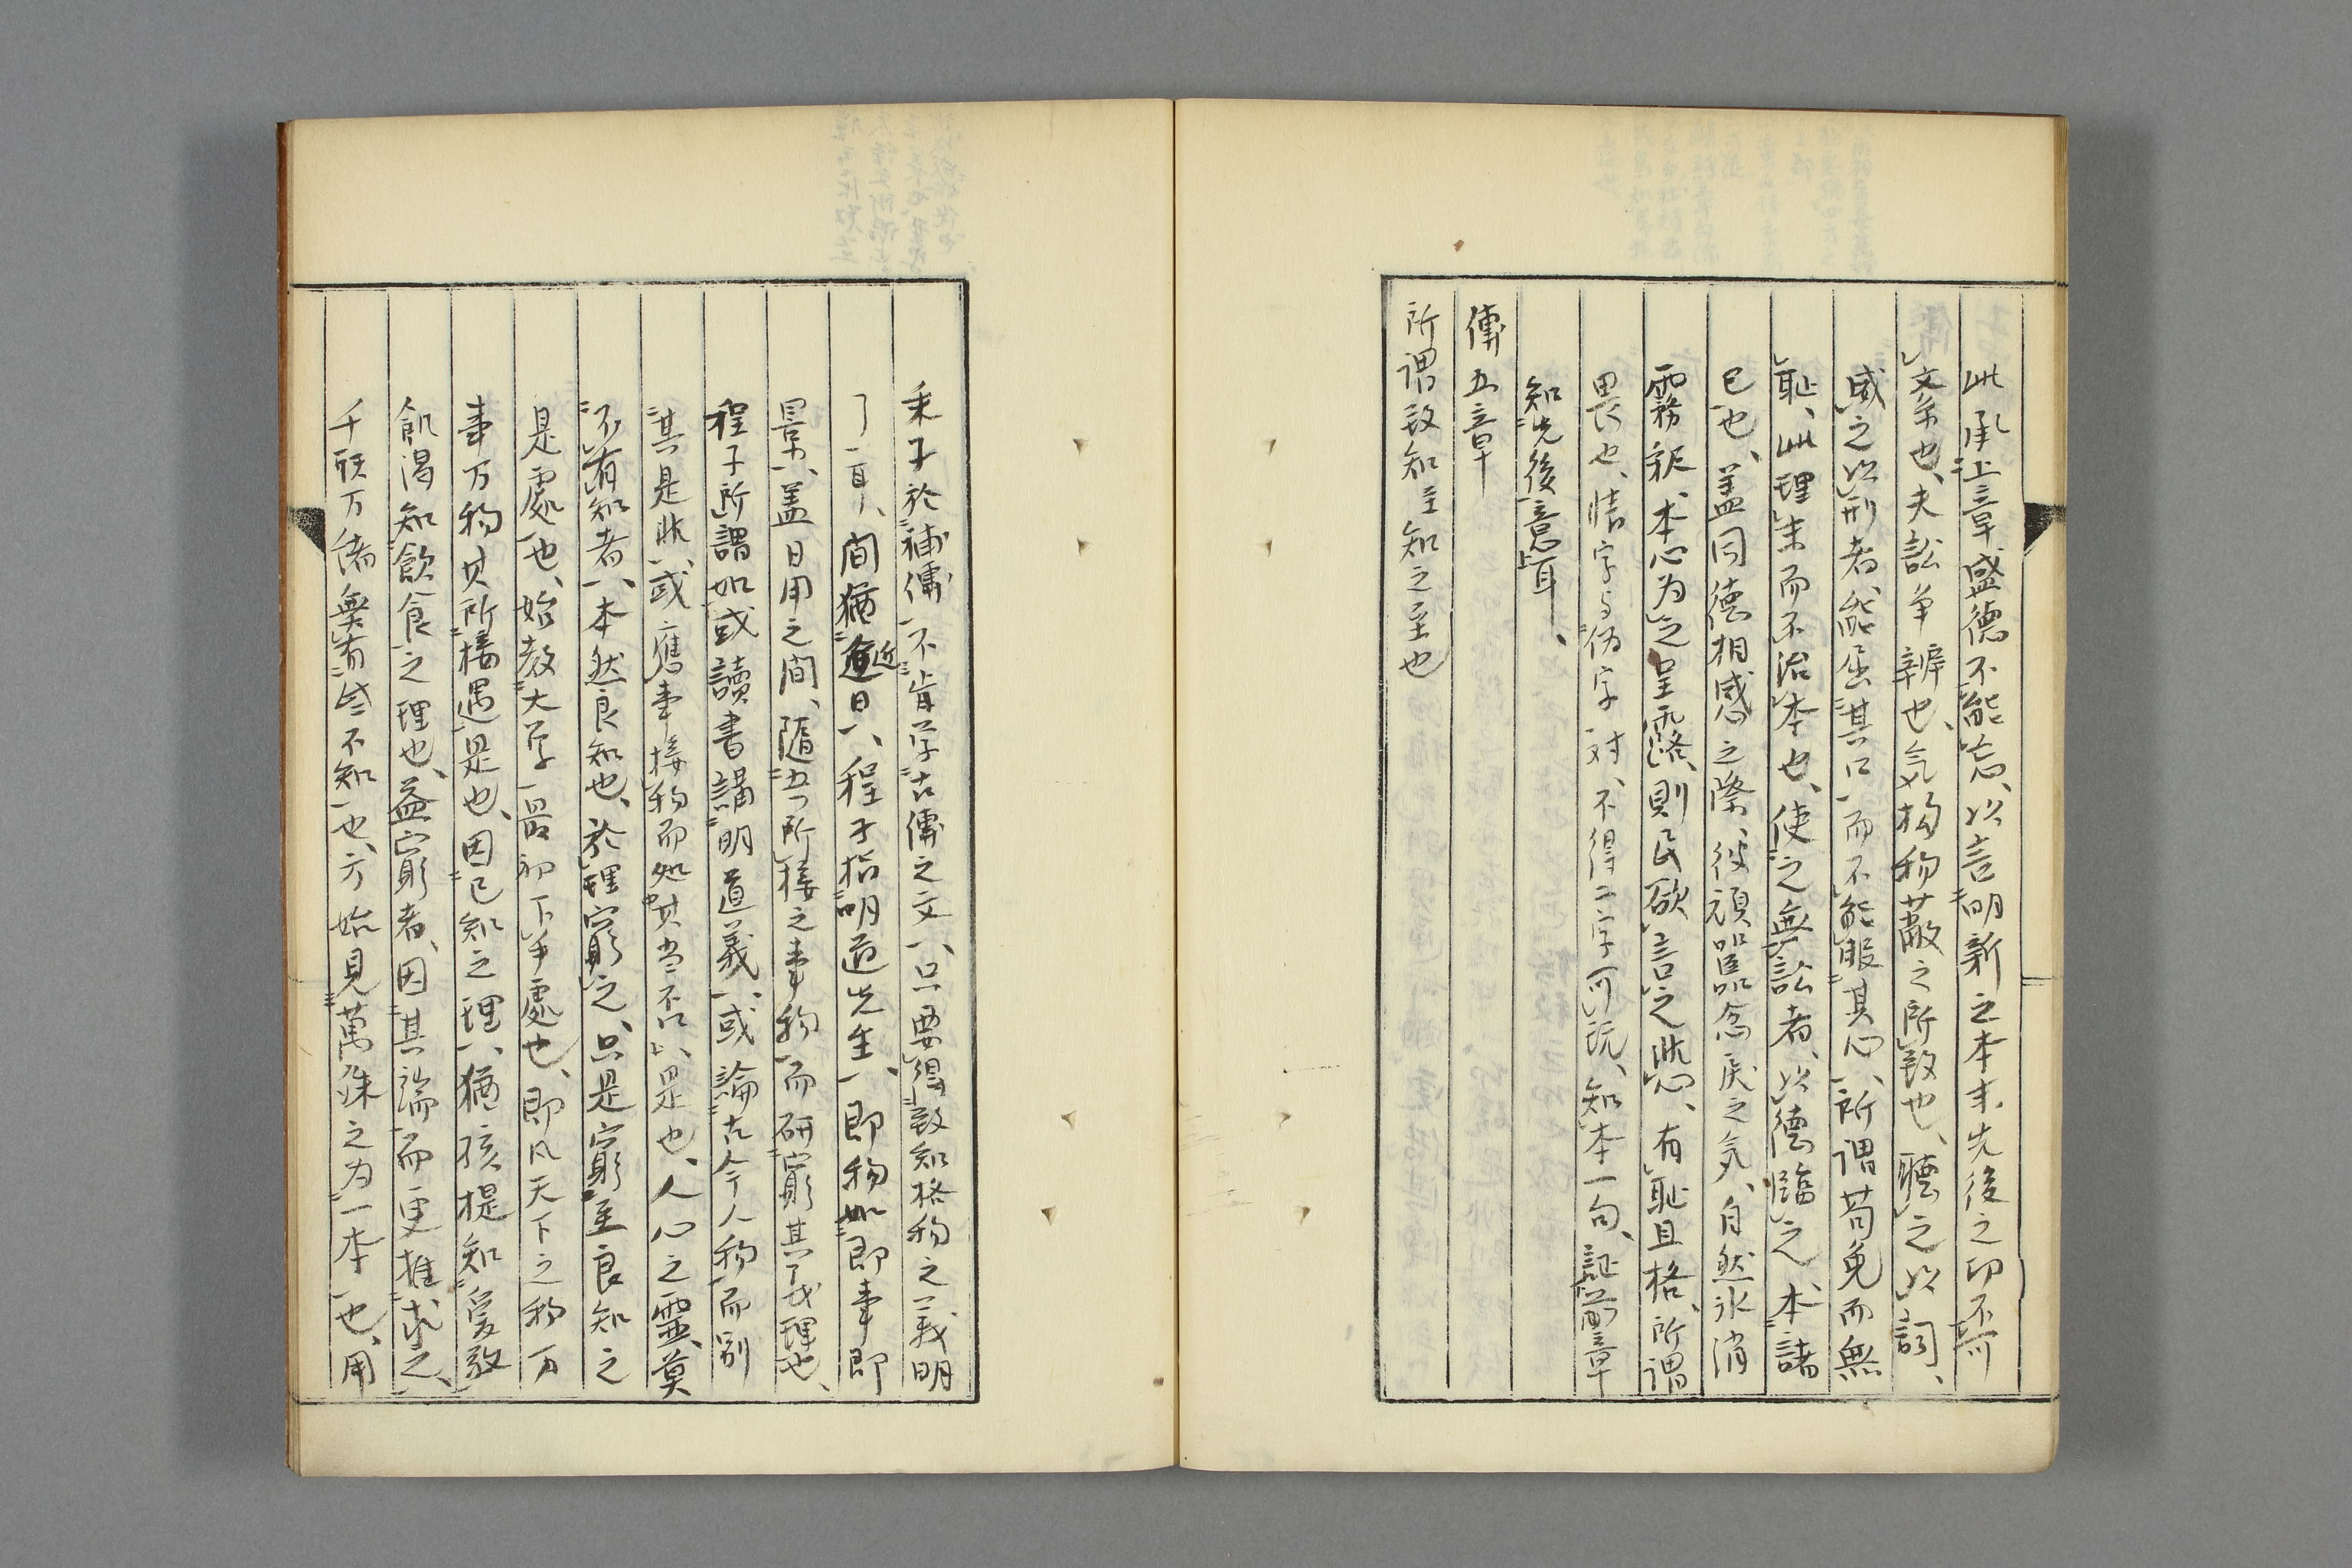 此承上章盛德不能忘、以言明新之本末先後之叩不可
文条也、夫訟争辨也、気構物蔽之所致也、聽之以詞、
威之以刑者、能屈其口、而不能服其心、所謂苟免而無
恥、此理末而不治本也、使之無訟者、以德臨之、本諸
已也、盖同德相感之際、彼頑嚚忿戻之気、自然氷消
霧釈、本心为之呈露、則民欲言之愧心、有恥且格、所謂
畏也、情字与偽字対、不得二字可玩、知本一句、証前章
知先後意耳、
傳五章
所謂致知至知之至也
朱子於補傳不肯学古傳之文、只要得致知格物之義明
了耳、間猶近日、程子指明道先生、即物如即事即
景、盖日用之間、隨吾所接之事物而研窮其理也、
程子所謂如或讀書講明道義、或論古今人物而别
其是非、或應事接物而処其当否、是也、人心之霊莫
不有知者、本然良知也、於理窮之、只是窮至良知之
是處也、始教大学最初下手處也、即凡天下之物万
事万物其所接遇是也、因已知之理、猶孩提知愛敬
飢渇知飲食之理也、益窮者、因其端而更推求之、
千頭万緒無有些不知也、方始見萬殊之为一本也、用